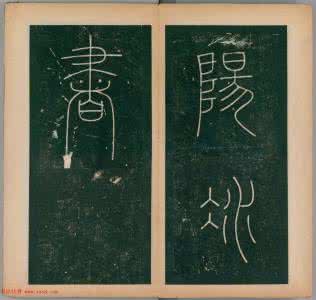 陽冰
書